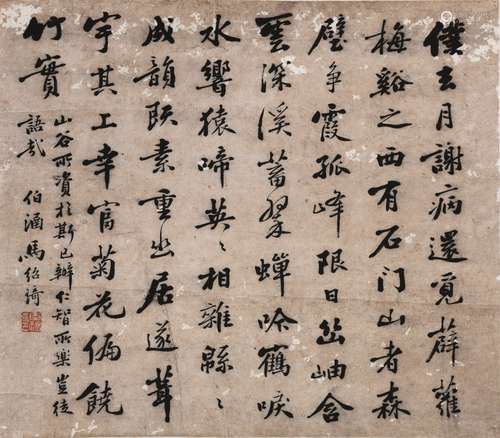 僕去月謝病還覓薜蘿
梅谿之西有石门山者森
壁争霞孤峰限日幽岫含
雲深溪蓄翠蟬吟鶴唳
水響猿啼英〻相雜緜〻
成韻既素重幽居遂葺
宇其上幸富菊花偏饒
竹實
山谷所資於斯已辦仁智所樂豈徒
語哉
伯 馬紹